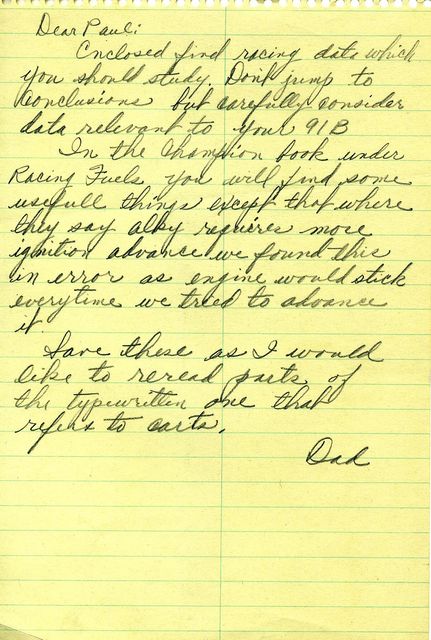 Dear Paul:
Enclosed find racing data which
you should study. Dont jump to
Conclusions but carefully consider
data relevant to your 91B
In the Champion book under
Racing Fuels you will find some
usefull things except that where
they say alky requires more
ignition advance we found this
in error as engine would stick
everytime we tried to advance
it.
Save these as I would
like to reread parts of
the typewritten one that
refers to carts.
Dad